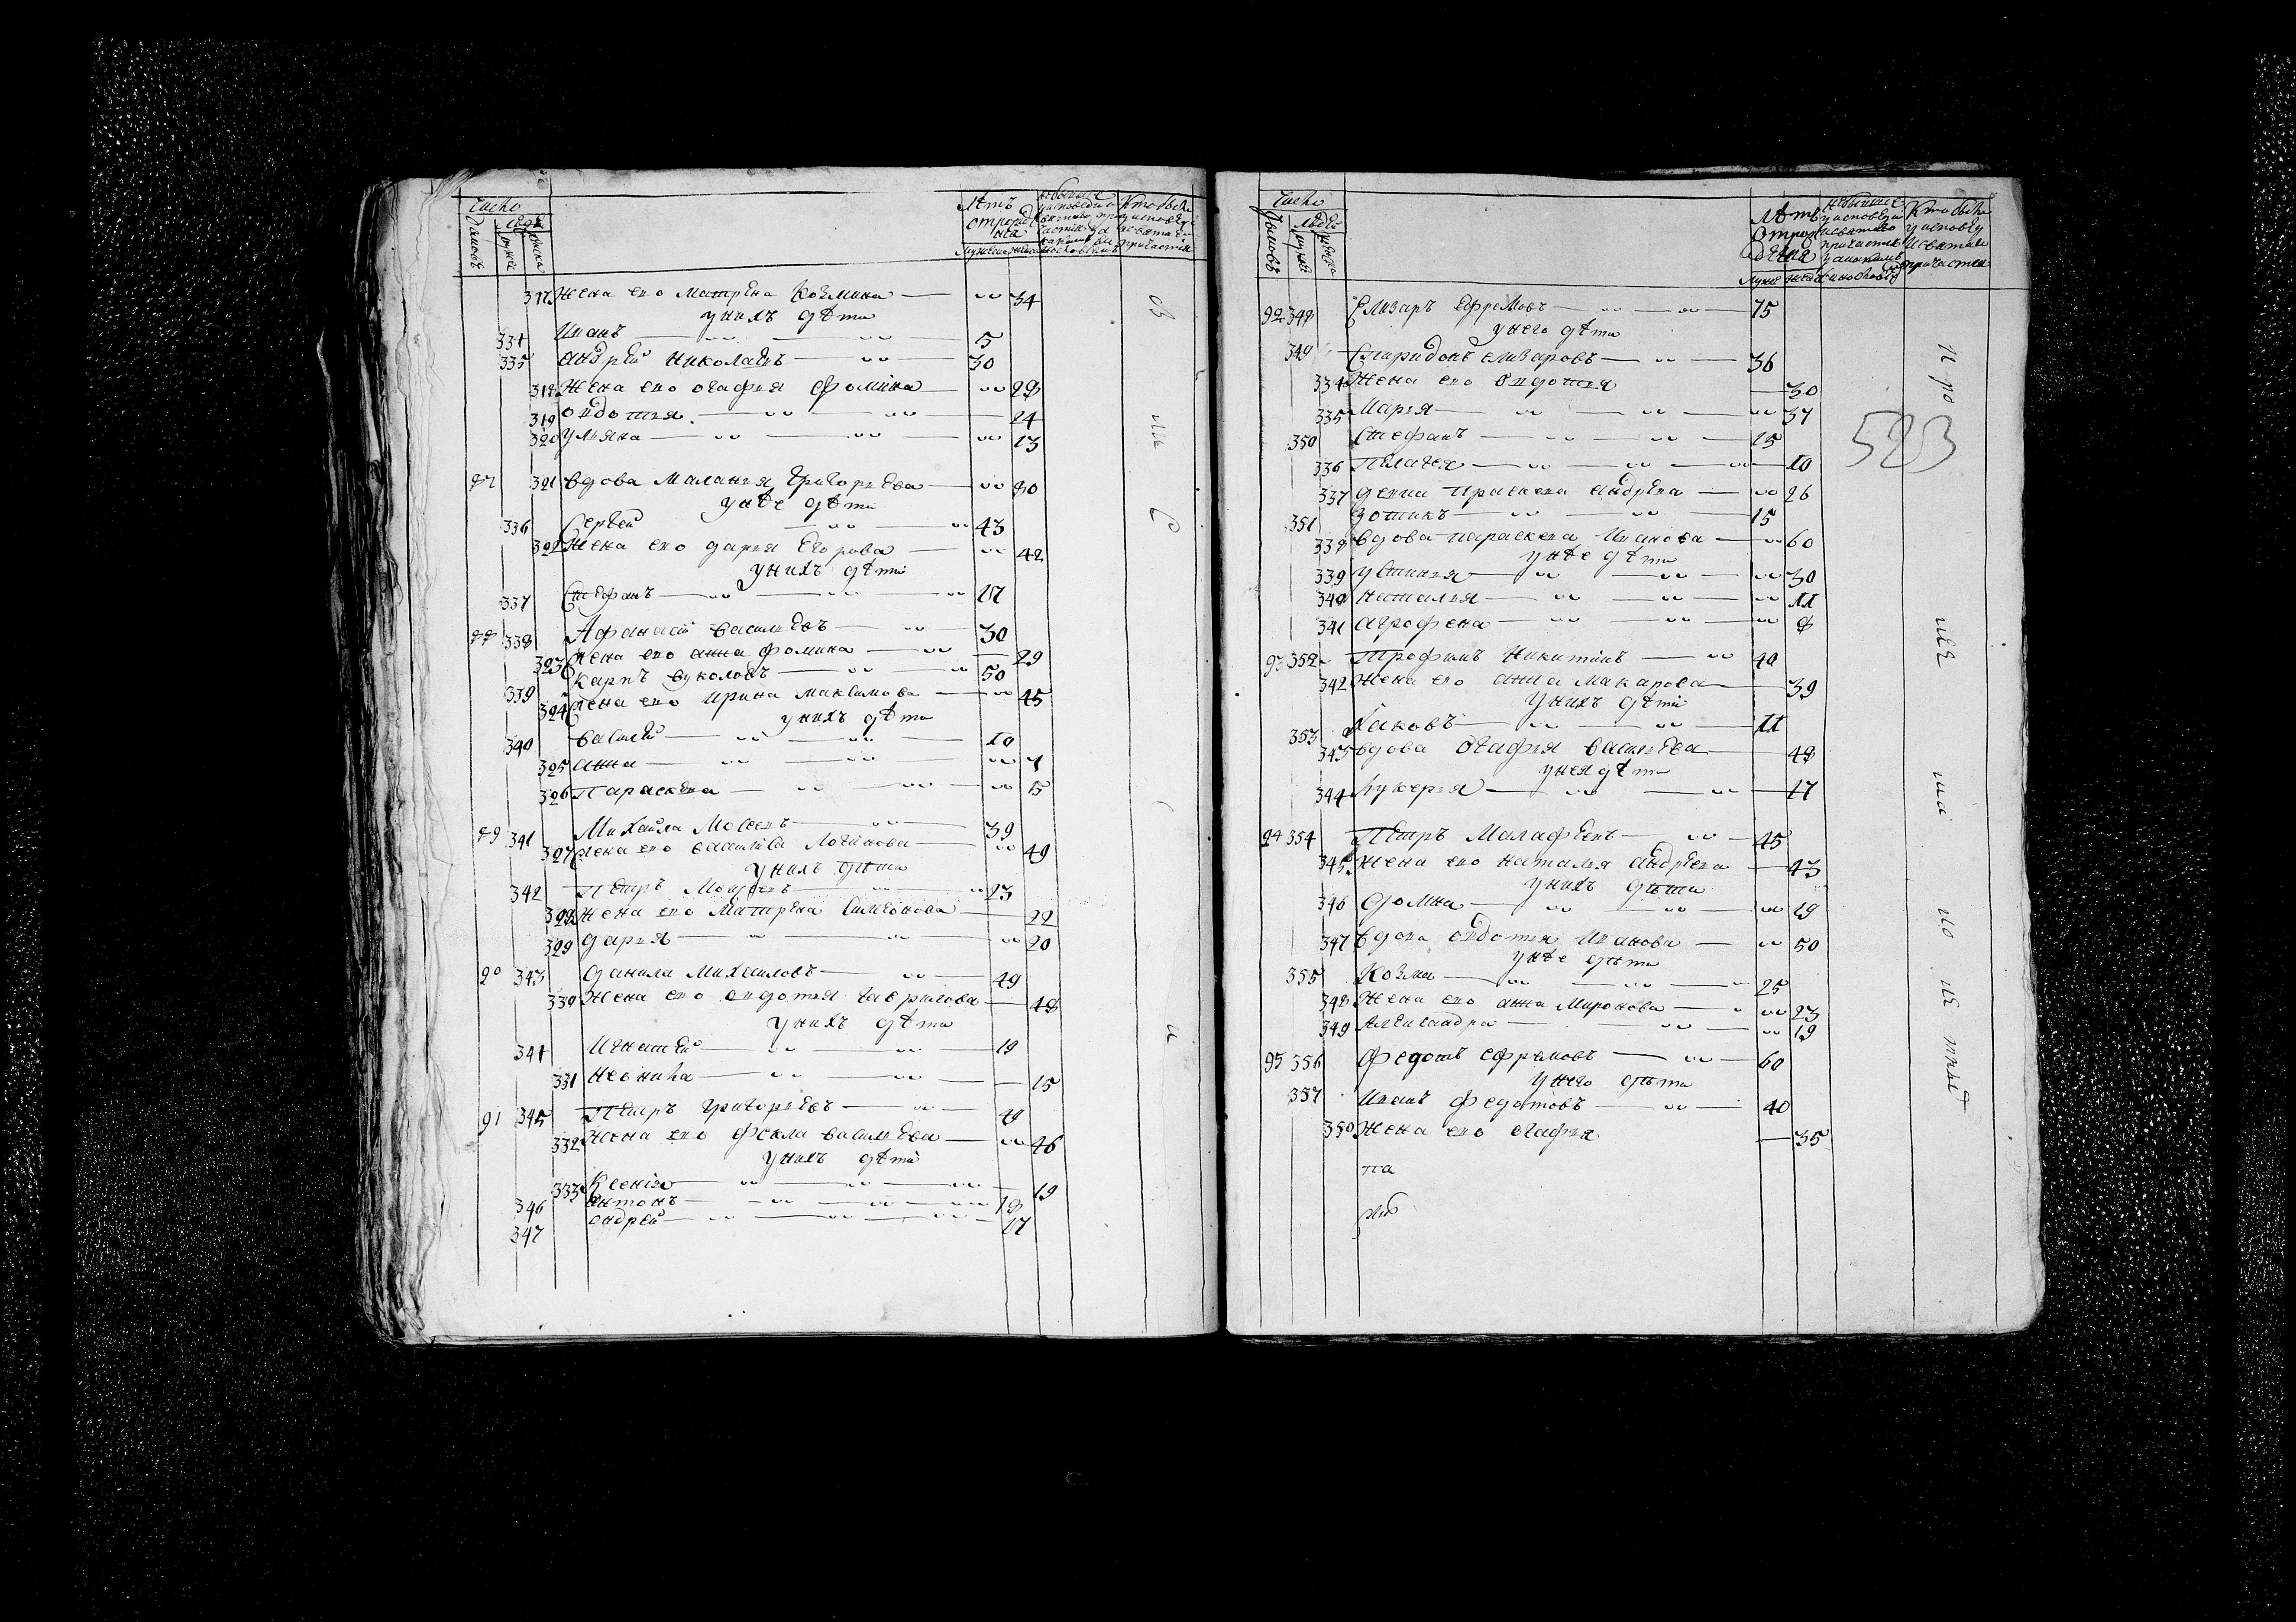 Число
Домовъ
Людей
Лѣтъ отрожд нія
317 Жена его Матрена Козмина 34
унихъ дѣти
334 Иванъ 5
335 андрей николаевъ 30
318 Жена его огафия фомина 28
319 овдотия 24
320 улияна 13
87 321 вдова Малания григориева 80
унѣе дѣти
336 Сергей 43
322 Жена его дария Егорова 42
унихъ дѣти
337 Стефанъ 17
88 338 Афанасий василиевъ 30
323 Жена его анна фомина 29
339 Карпъ вуколовъ 50
324 Жена его ирина максимова 45
унихъ дѣти
340 василей 10
325 анна 7
326 Параскева 5
89 341 Михайла Мосеевъ 39
327 Жена его василиса логинова 49
унихъ дѣти
342 Петръ 23
328 Жена его Матрена Симионова 22
329 дария 20
90 343 данила Михаиловъ 49
330 Жена его овдотия гаврилова 48
унихъ дѣти
344 Игнатей 19
331 неонила 15
91 345 Петръ григориевъ 48
332 Жена его фекла василиева 46
унихъ дѣти
333 Ксения 19
346 антонъ 18
347 андрей 17
Число
Домовъ
Людей
Лѣтъ отрож дения
92 348 Елизаръ ефремовъ 75
унего дѣти
349 Спиридонъ елизаровъ 36
334 Жена его овдотия 30
335 Мария 37
350 Стефанъ 15
336 Пелагея 10
337 девка праскева андрева 26
351 зотикъ 15
338 вдова параскева Иванова 60
унѣе дѣти
339 устиния 30
340 наталия 11
341 агрофена 8
93 352 Трофимъ Никитинъ 40
342 Жена его анна Макарова 39
унихъ дѣти
353 Иаковъ 11
343 вдова огафия василиева 48
унея дѣти
344 лукерия 17
94 354 Петръ Малафеевъ 45
345 Жена его наталия андреева 43
унихъ дѣти
346 домна 19
347 вдова овдотия Иванова 50
унѣе дѣти
355 Козма 25
348 Жена его анна Миронова 23
349 Александра 19
95 356 федотъ ефремовъ 60
унего дѣти
357 Иванъ федотовъ 40
350 Жена его огафия 35
523